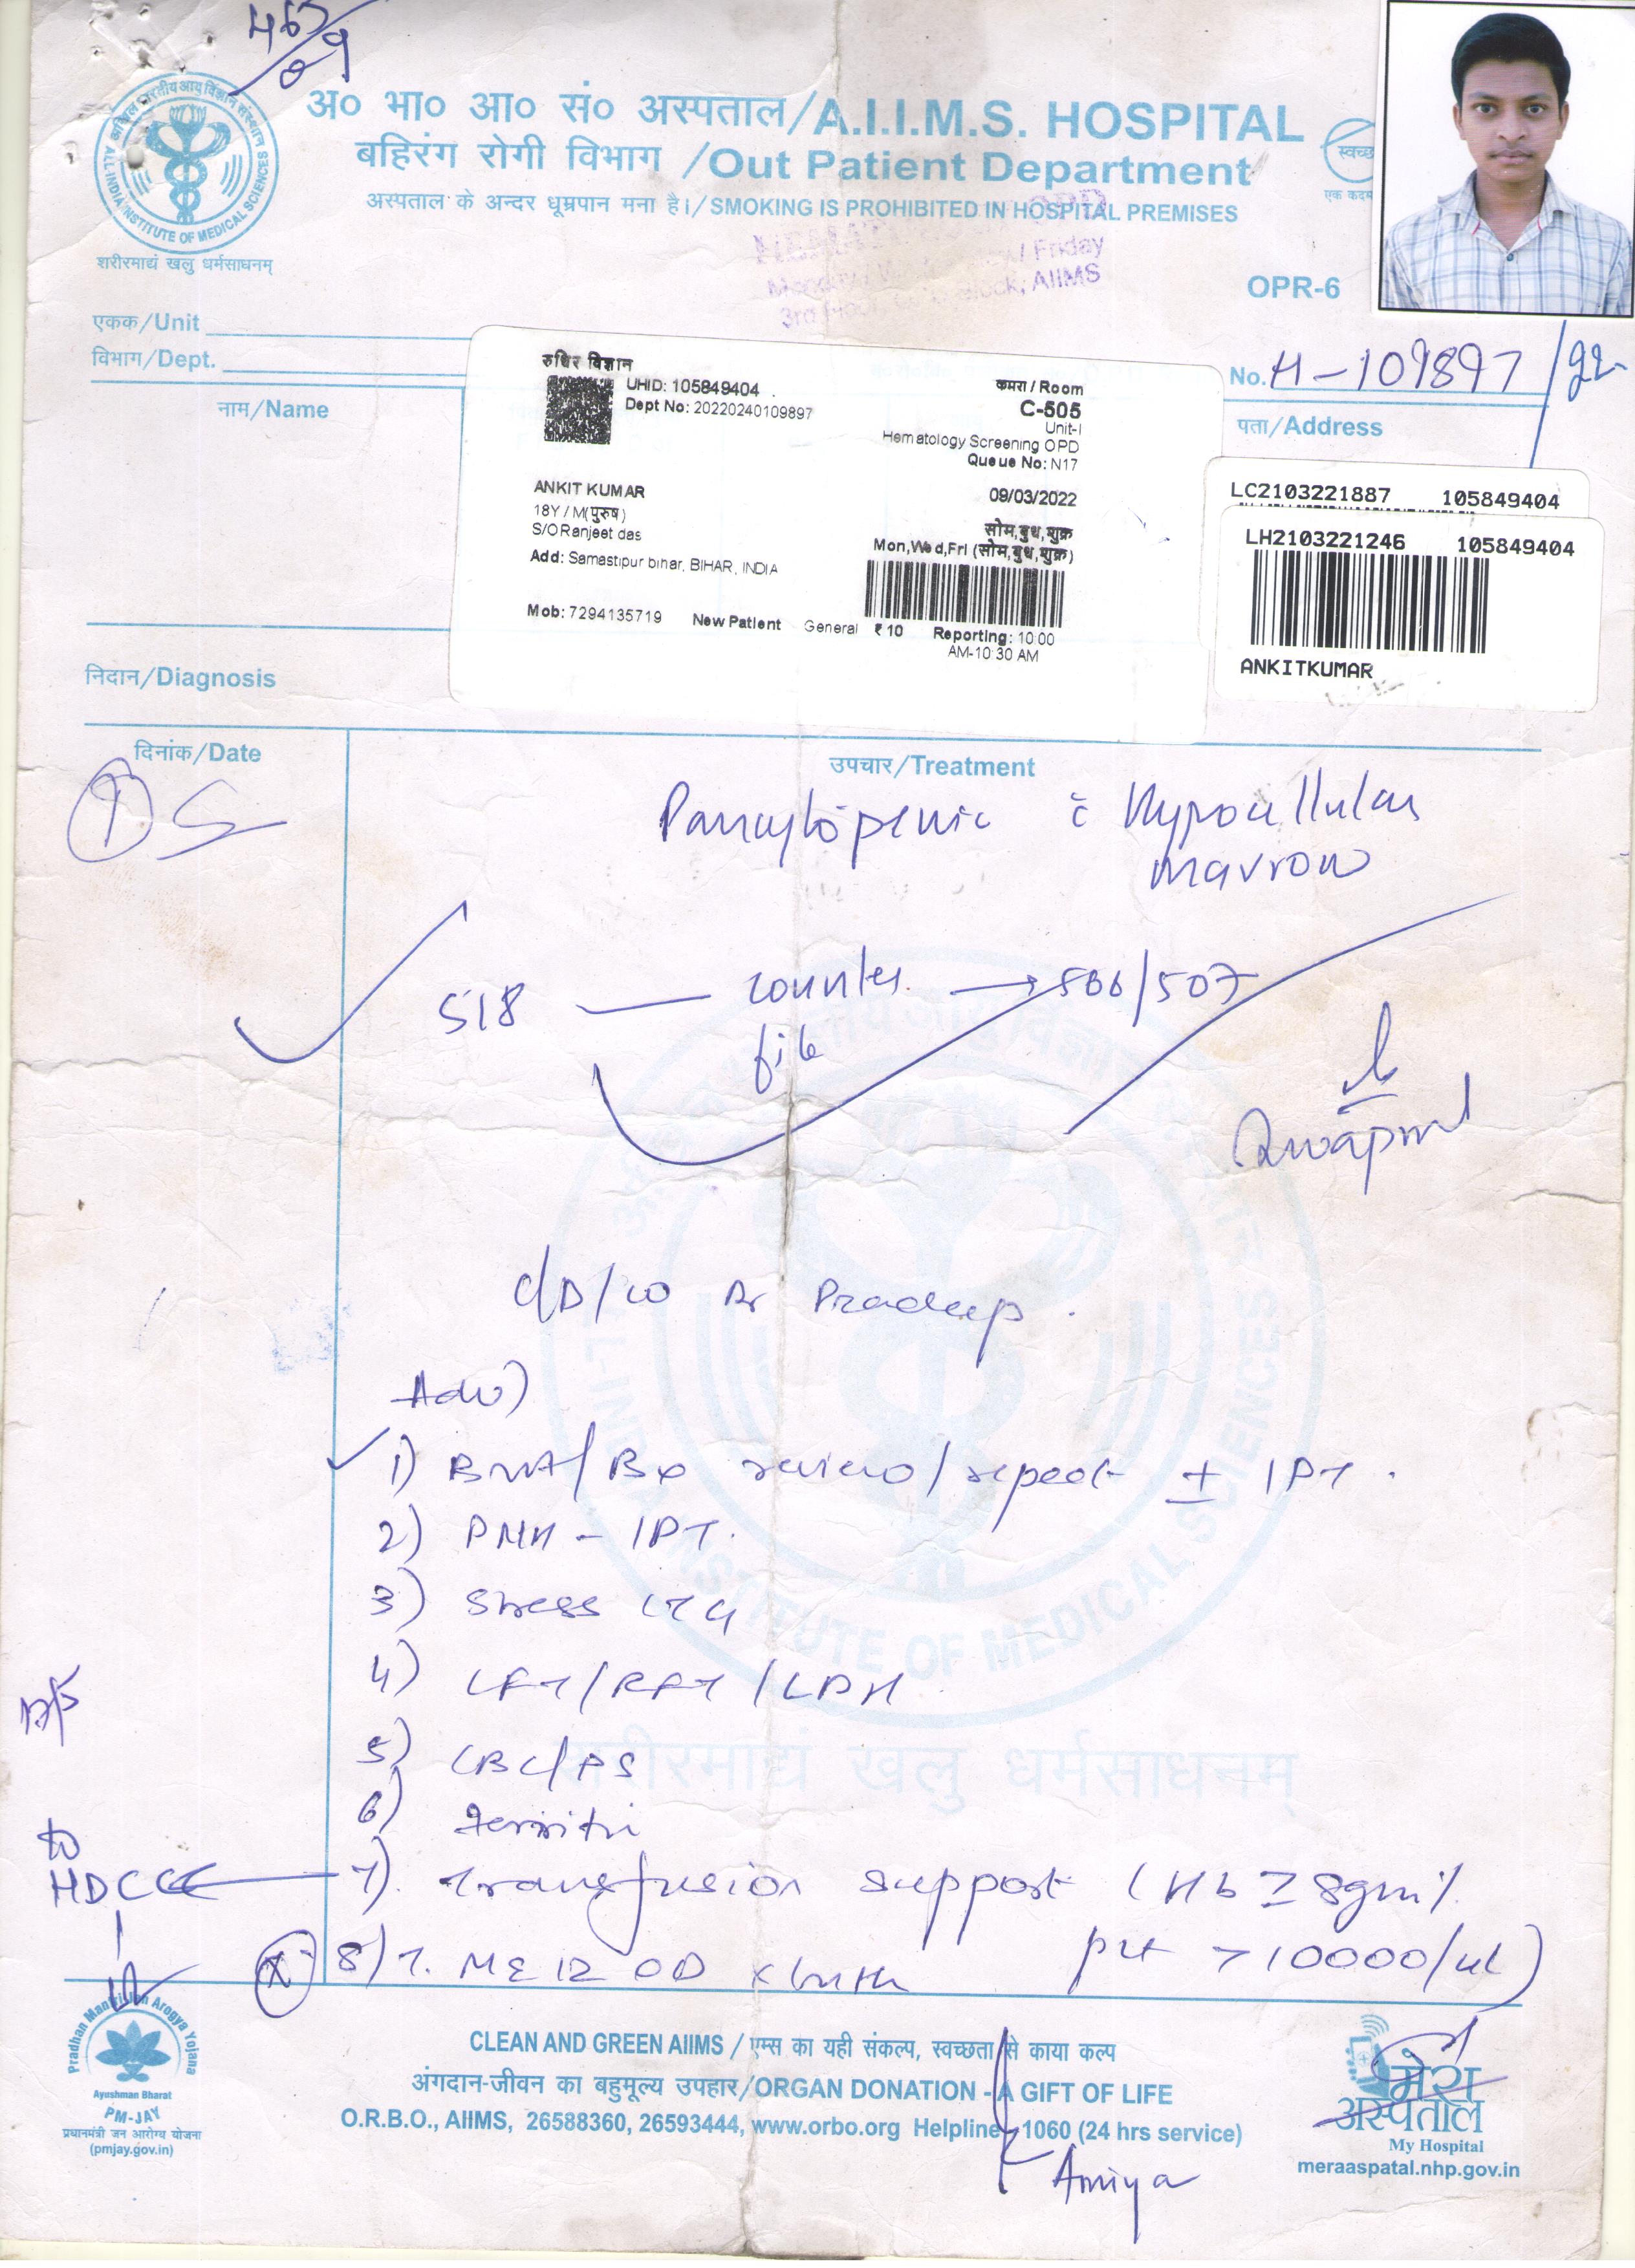 467
09
अ० भा० आ० सं० अस्पताल/A.I.I.M.S. HOSPITAL
बहिरंग रोगी विभाग /Out Patient Department
अस्पताल के अन्दर धूम्रपान मना है।/SMOKING IS PROHIBITED IN HOSPITAL PREMISES
ALL INDIA INSTITUTE OF MEDICAL SCIENCES
शरीरमाद्यं खलु धर्मसाधनम्
स्वच्छ
एक कदम
OPD
Friday
AIIMS
3rd
OPR-6
एकक/Unit
विभाग/Dept.
No. H-109897/22
नाम/Name
पता/Address
रुधिर विज्ञान
UHID: 105849404
Dept No: 20220240109897
कमरा / Room
C-505
Unit-I
Hematology Screening OPD
Queue No: N17
ANKIT KUMAR
09/03/2022
18Y / M(पुरुष)
S/O Ranjeet das
सोम,बुध,शुक्र
Mon,Wed,Fri (सोम,बुध,शुक्र)
Add: Samastipur bihar, BIHAR, INDIA
Mob: 7294135719 New Patient General ₹ 10 Reporting: 10:00
AM-10:30 AM
LC2103221887 105849404
LH2103221246 105849404
ANKITKUMAR
निदान/Diagnosis
दिनांक/Date
उपचार/Treatment
Pancytopenic c̄ Hypocellular
marrow
518 — counter → 506/507
file
Swapnil
C/D/W Dr Pradeep.
Adv)
1) BMA/Bx review/repeat ± IPT.
2) PNH - IPT.
3) Stress
4) LFT/RFT/LDH
5) CBC/PS
6) Ferritin
to
HDCC ← 7). Transfusion support (Hb ≥ 8gm%
plt >10000/ul)
8) T. M212 OD
Pradhan Mantri Jan Arogya Yojana
Ayushman Bharat
PM-JAY
प्रधानमंत्री जन आरोग्य योजना
(pmjay.gov.in)
CLEAN AND GREEN AIIMS / एम्स का यही संकल्प, स्वच्छता से काया कल्प
अंगदान-जीवन का बहुमूल्य उपहार/ORGAN DONATION - A GIFT OF LIFE
O.R.B.O., AIIMS, 26588360, 26593444, www.orbo.org Helpline - 1060 (24 hrs service)
मेरा
अस्पताल
My Hospital
meraaspatal.nhp.gov.in
Amiya